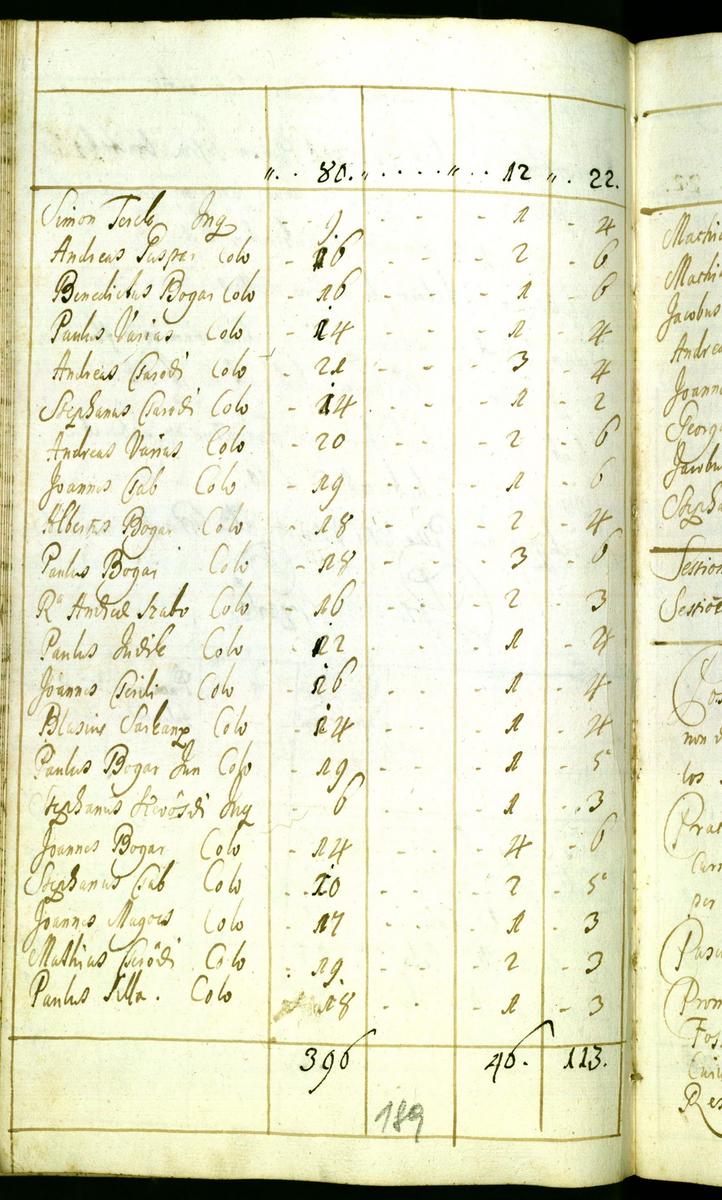 „ . . 80. „ . . . . . „ . . 12 „ . 22.
Simon Jnq - - 9. - - - 1 - 4
Andreas Gaspar Colo - 16 - - - 2 - 6
Benedictus Bogar Colo - 16 - - - 1 - 6
Paulus Varias Colo - 14 - - - 1 - 4
Andreas Csarodi Colo - 21 - - - 3 - 4
Stephanus Csarodi Colo - 14 - - - 1 - 2
Andreas Varias Colo - 20 - - - 2 - 6
Joannes Csab Colo - 19 - - - 1 - 6
Albertus Bogar Colo - 18 - - - 2 - 4
Paulus Bogar Colo - 18 - - - 3 - 6
Ra Andreæ Szabo Colo - 16 - - - 2 - 3
Paulus Colo - 12 - - - 1 - 4
Joannes Colo - 16 - - - 1 - 4
Blasius Sarkany Colo - 14 - - - 1 - 4
Paulus Bogar Jun Colo - 19 - - - 1 - 5
Stephanus Jnq - 6 - - - 1 - 3
Joannes Bogar Colo - 14 - - - 4 - 6
Stephanus Csab Colo - 10 - - - 2 - 5
Joannes Magocs Colo - 17 - - - 1 - 3
Mathias Colo - 19. - - - 2 - 3
Paulus Colo 18 - - - 1 - 3
396 46. 113.
189
Mathi
Mathi
Jacobus
Andrea
Joanne
Georg
Jacobu
Stepha
Session
Sessio
non
los
Prat
per
Pasc
Prom
Fos